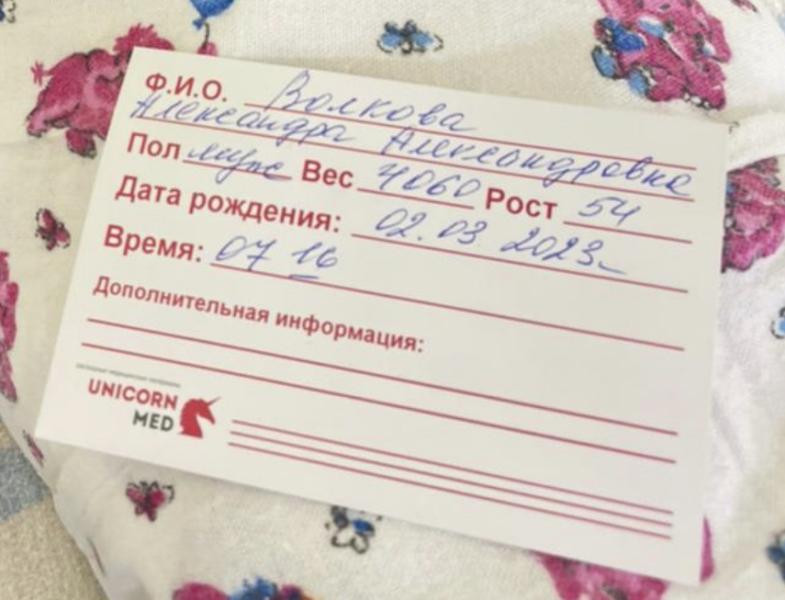 Ф.И.О. Волкова
Александра Александровна
Пол муж Вес 4060 Рост 54
Дата рождения: 02.03 2023г
Время: 07 16
Дополнительная информация:
UNICORN
MED